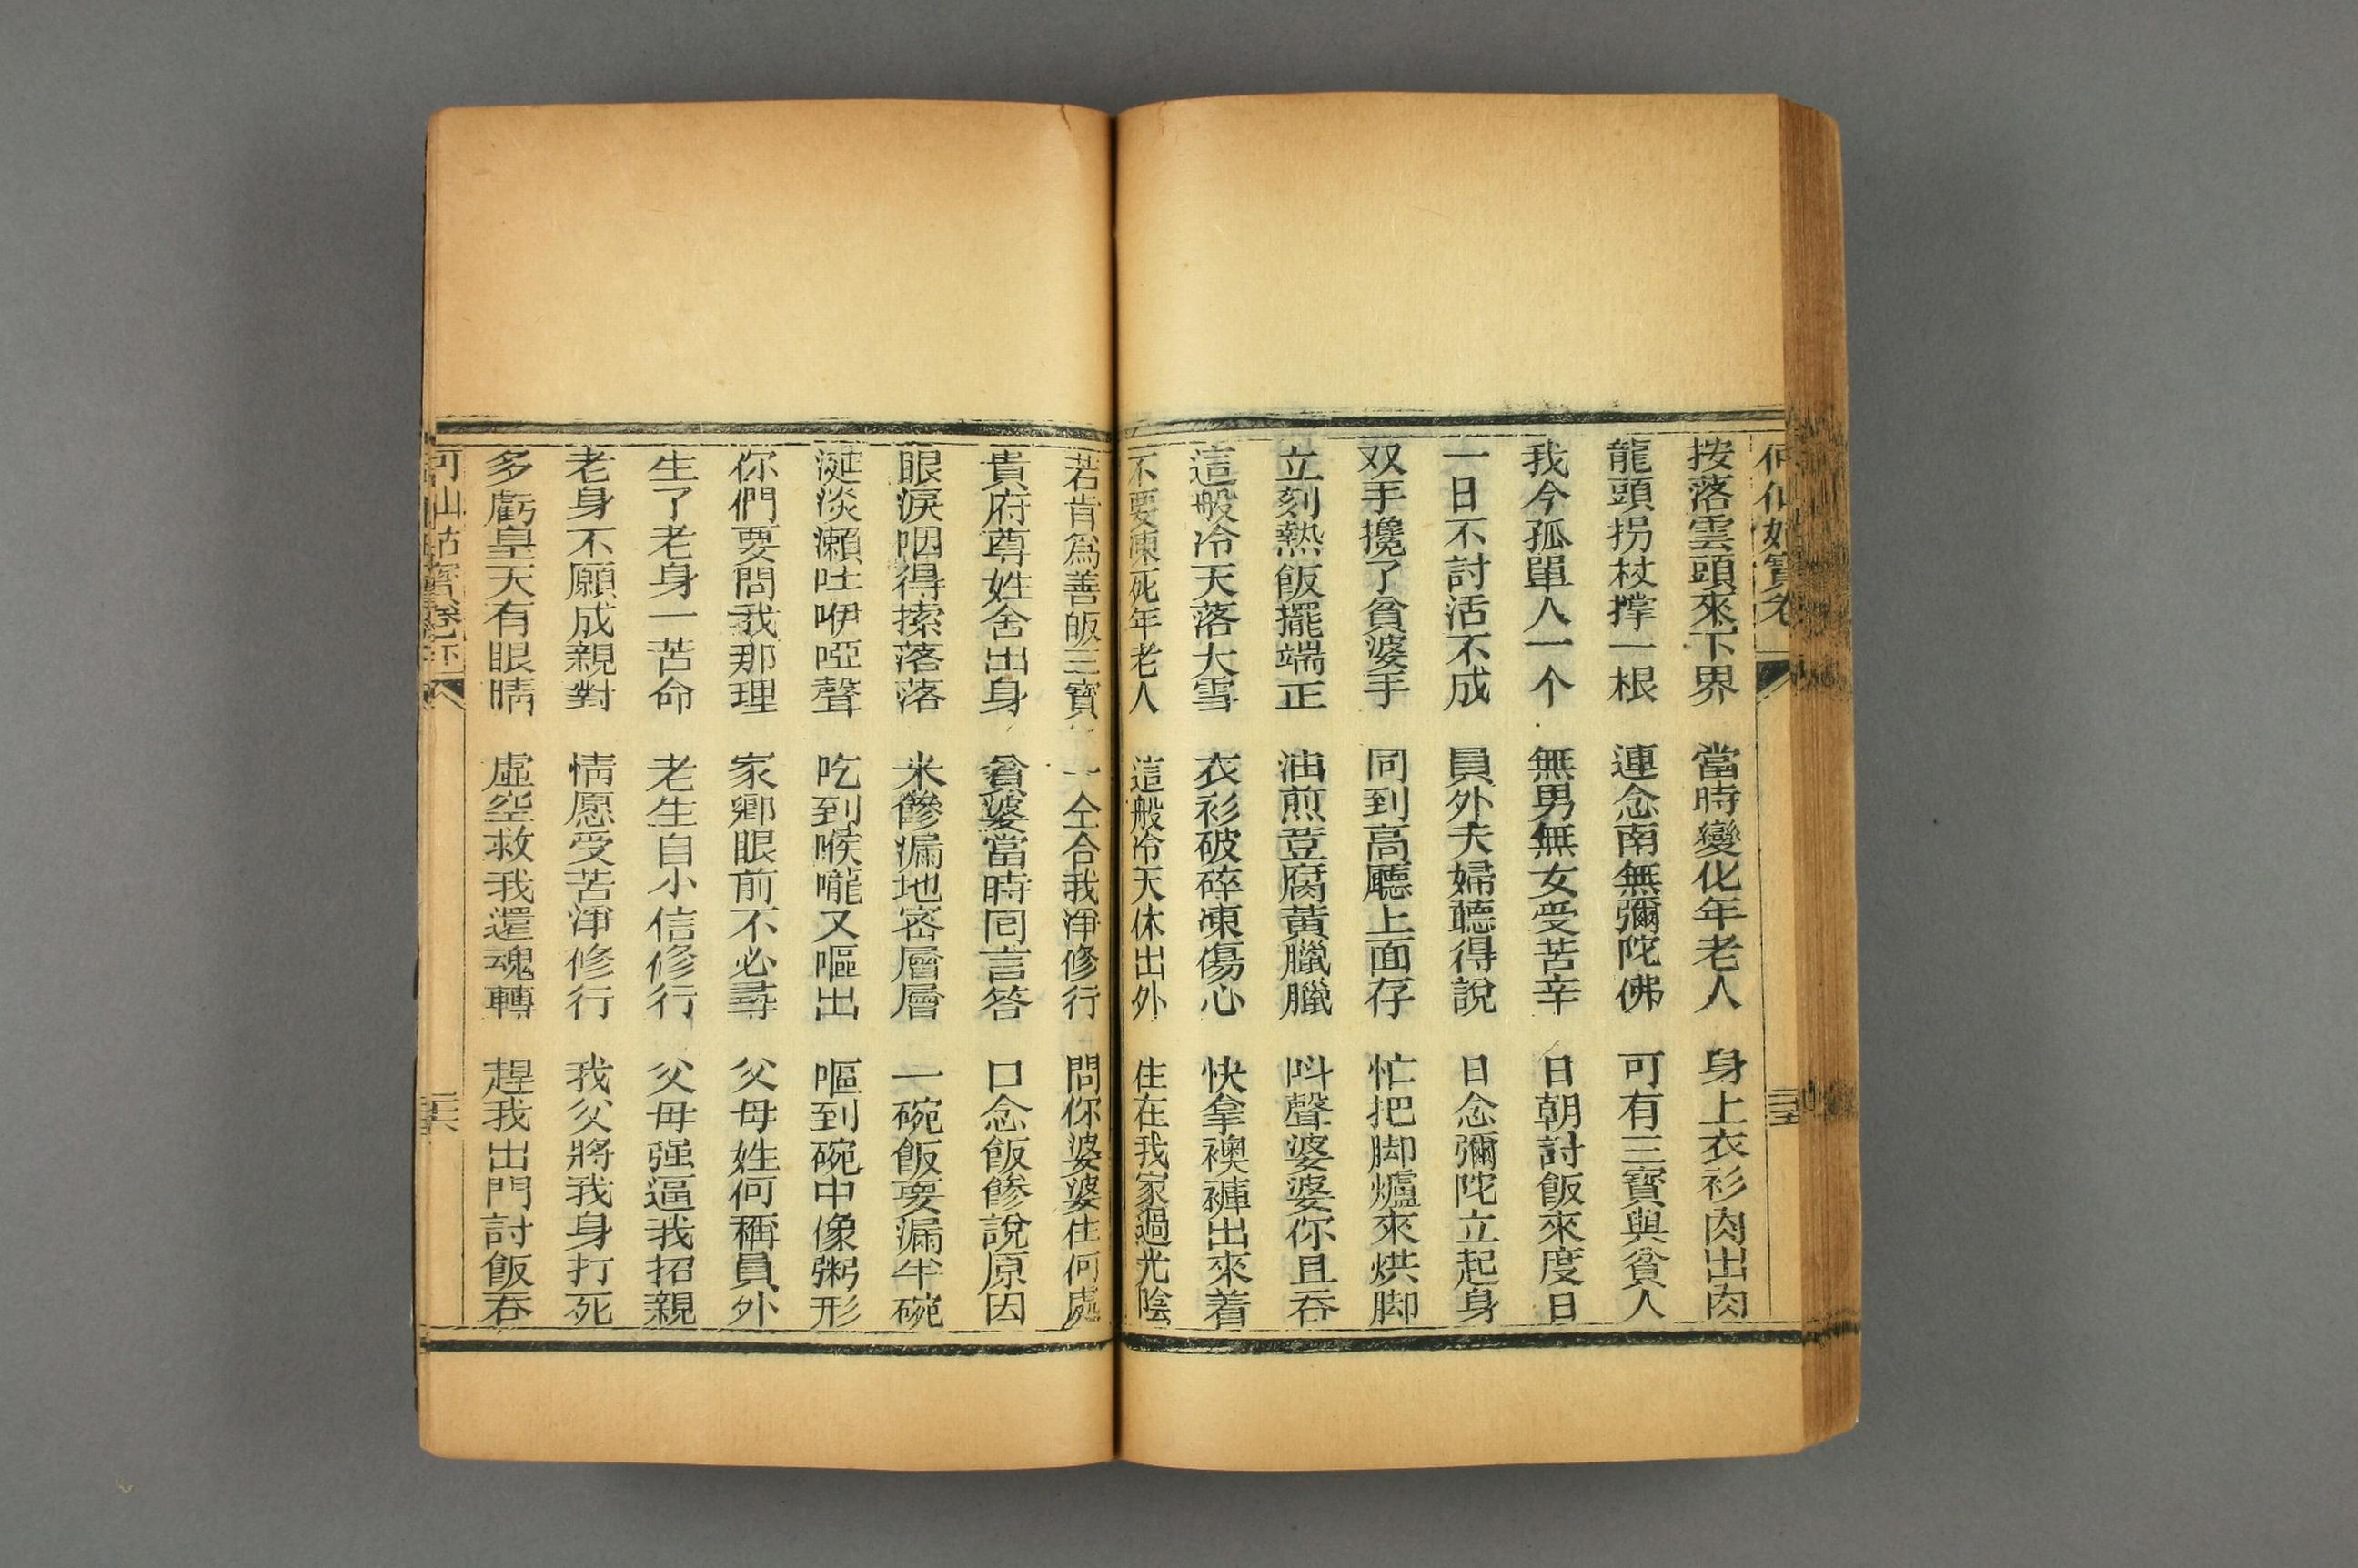 何仙姑寶卷
三五
按落雲頭來下界 當時變化年老人 身上衣衫肉出肉
龍頭拐杖撑一根 連念南無彌陀佛 可有三寶與貧人
我今孤單人一个 無男無女受苦辛 日朝討飯來度日
一日不討活不成 員外夫婦聽得說 日念彌陀立起身
双手攙了貧婆手 同到高廳上面存 忙把脚爐來烘脚
立刻熱飯擺端正 油煎荳腐黃臘臘 呌聲婆婆你且吞
這般冷天落大雪 衣衫破碎凍傷心 快拿襖褲出來着
不要凍死年老人 這般冷天休出外 住在我家過光陰
若肯爲善皈三寶 一仝合我淨修行 問你婆婆住何處
貴府尊姓舍出身 貧婆當時囘言答 口念飯餘說原因
眼淚咽得索落落 米饞漏地密層層 一碗飯要漏半碗
涎淡瀨吐咿啞聲 吃到喉嚨又嘔出 嘔到碗中像粥形
你們要問我那理 家鄉眼前不必尋 父母姓何稱員外
生了老身一苦命 老生自小信修行 父母强逼我招親
老身不願成親對 情愿受苦淨修行 我父將我身打死
多虧皇天有眼睛 虛空救我還魂轉 趕我出門討飯吞
何仙姑寶卷下
三六